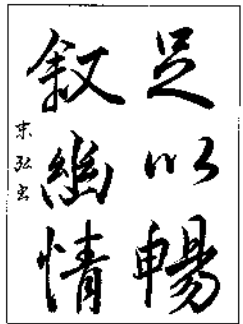 足以暢
叙幽情
宋弘書